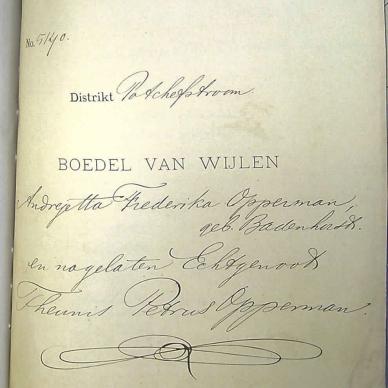 No. 5140.
Distrikt Potchefstroom.
BOEDEL VAN WIJLEN
Andrejetta Frederika Opperman,
geb. Badenhorst.
en nagelaten Echtgenoot
Theunis Petrus Opperman.